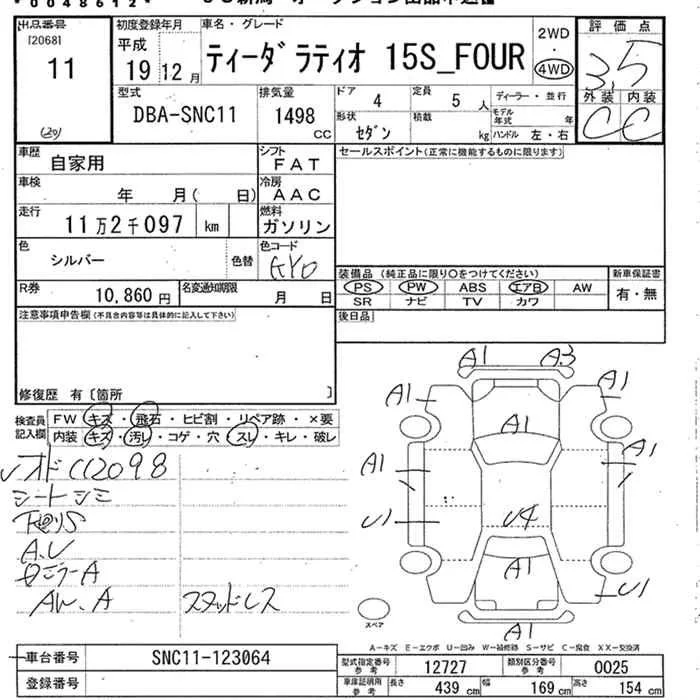 出品番号
[2068]
11
初度登録年月
平成
19 12 月
車名・グレード
ティーダ ラティオ 15S_FOUR
2WD
・
4WD
評価点
3.5
外装 内装
C C
型式
DBA-SNC11
排気量
1498
CC
ドア
4
定員
5 人
ディーラー・並行
モデル年式 年
形状
セダン
積載
kg
ハンドル 左・右
車歴
自家用
シフト
FAT
セールスポイント(正常に機能するものに限ります)
車検
年 月( 日)
冷房
AAC
走行
11万2千097 km
燃料
ガソリン
色
シルバー
色替
色コード
KY0
R券
10,860 円
名変通知期限
月 日
装備品 (純正品に限り○をつけてください)
PS PW ABS エアB AW
SR ナビ TV カワ
新車保証書
有・無
後日品
注意事項申告欄(不具合内容等は具体的に記入して下さい)
修復歴 有 〔箇所 〕
検査員記入欄
FW キズ・飛石・ヒビ割・リペア跡・×要
内装 キズ・汚レ・コゲ・穴・スレ・キレ・破レ
シートシミ
A.U
AW.A
スタッドレス
A1 A3
A1 A1
A1
A1 A1
U1 U4
A1
U1
A1
スペア
A-キズ E-エクボ U-凹み W-補修跡 S-サビ C-腐食 XX-交換済
車台番号
SNC11-123064
登録番号
型式指定番号参考
12727
類別区分番号参考
0025
車庫証明用参考
長さ 439 cm
幅 169 cm
高さ 154 cm